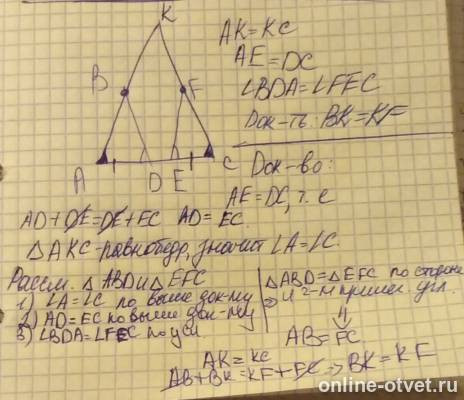 K
B
F
A
D E
C
AK = KC
AE = DC
∠BDA = ∠FEC
Док-ть: BK = KF
Док-во:
AE = DC, т.е
AD + DE = DE + EC AD = EC.
△AKC - равнобедр, значит ∠A = ∠C.
Рассм. △ABD и △EFC
1) ∠A = ∠C по выше док-му
2) AD = EC по выше док-му
3) ∠BDA = ∠FEC по усл.
△ABD = △EFC по стороне
⇒ и 2-м прилеж. угл.
⇓
AB = FC.
AK = KC
AB + BK = KF + FC ⇒ BK = KF
online-otvet.ru